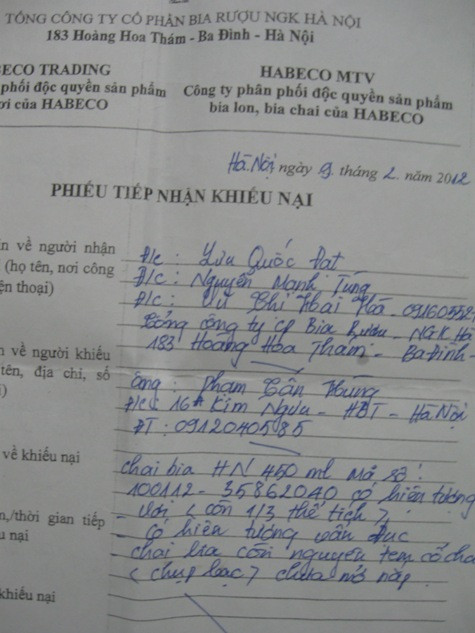 TỔNG CÔNG TY CỔ PHẦN BIA RƯỢU NGK HÀ NỘI
183 Hoàng Hoa Thám - Ba Đình - Hà Nội
ECO TRADING
phối độc quyền sản phẩm
ơi của HABECO
HABECO MTV
Công ty phân phối độc quyền sản phẩm
bia lon, bia chai của HABECO
Hà Nội ngày 9 tháng 2 năm 2012
PHIẾU TIẾP NHẬN KHIẾU NẠI
n về người nhận
(họ tên, nơi công
ện thoại)
Đ/c : Lưu Quốc Đạt
Đ/c : Nguyễn Mạnh Tùng
Đ/c : Vũ Thị Hải Hà -
Tổng công ty CP Bia Rượu - NGK Hà
183 Hoàng Hoa Thám - Ba Đình -
n về người khiếu
tên, địa chỉ, số
Ông : Phạm Tấn
Đ/c : 16 Kim Ngưu - HBT - Hà Nội
ĐT : 0912040585
về khiếu nại
chai bia HN 450 ml mã số :
100112 - 35862040 có hiện tượng
n,/thời gian tiếp
u nại
- vơi ( còn 1/3 thể tích )
- có hiện tượng vẩn đục
chai bia còn nguyên tem cổ chai
( chụp bạc ) chưa mở nắp
khiếu nại